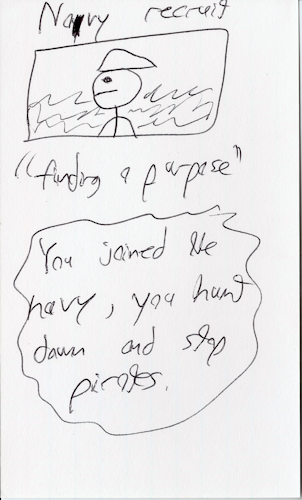 Navy recruit
"finding a purpose"
You joined the
navy, you hunt
down and stop
pirates.